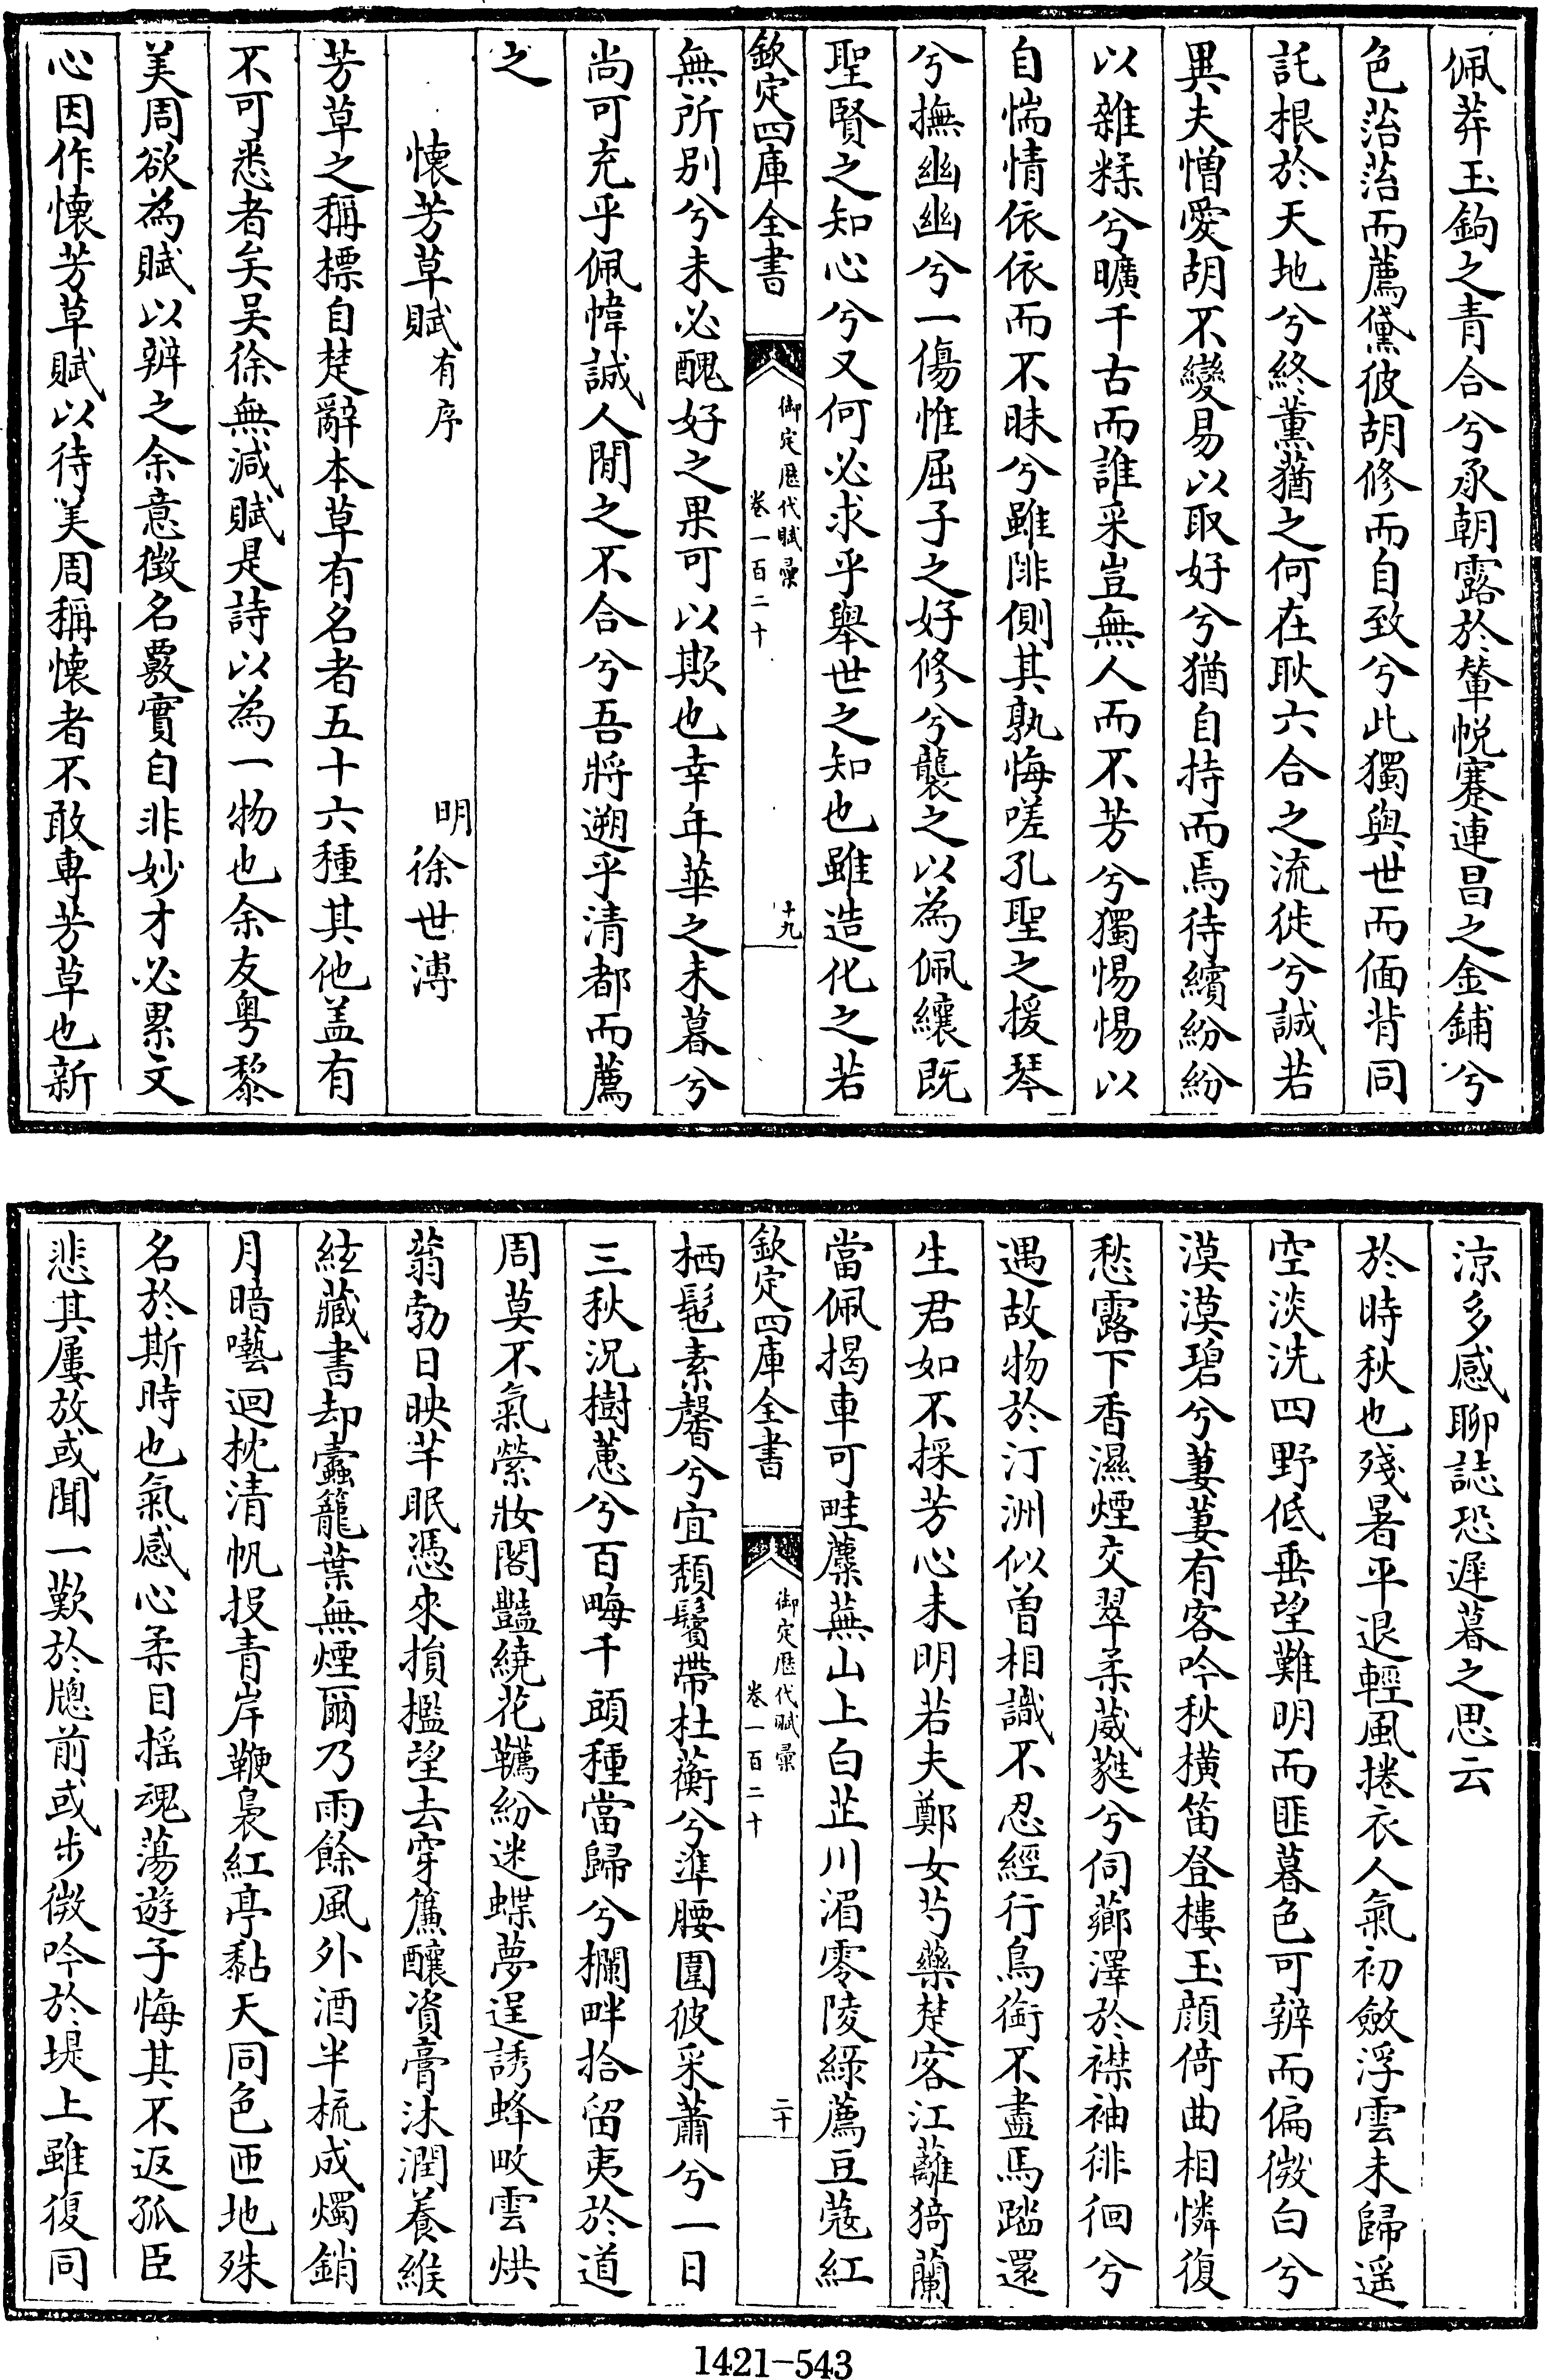 佩莽玉鉤之青合兮承朝露於輦帨蹇連昌之金鋪兮
色菭菭而薦黛彼胡修而自致兮此獨與世而偭背同
託根於天地兮終薰蕕之何在耿六合之流徙兮誠若
異夫憎愛胡不變易以取好兮猶自持而焉待繽紛紛
以雜糅兮曠千古而誰采豈無人而不芳兮獨惕惕以
自惴情依依而不昧兮雖陫側其孰悔嗟孔聖之援琴
兮撫幽幽兮一傷惟屈子之好修兮襲之以為佩纕既
聖賢之知心兮又何必求乎舉世之知也雖造化之若
欽定四庫全書
御定歷代賦彙
卷一百二十
十九
無所別兮未必醜好之果可以欺也幸年華之未暮兮
尚可充乎佩幃誠人閒之不合兮吾將遡乎清都而薦
之
懷芳草賦有序
明徐世溥
芳草之稱標自楚辭本草有名者五十六種其他盖有
不可悉者矣吴徐無減賦是詩以為一物也余友粤黎
美周欲為賦以辨之余意徵名覈實自非妙才必累文
心因作懷芳草賦以待美周稱懷者不敢専芳草也新
涼多感聊誌恐遲暮之思云
於時秋也殘暑平退輕風捲衣人氣初斂浮雲未歸遥
空淡洗四野低垂望難明而匪暮色可辨而偏微白兮
漠漠碧兮萋萋有客吟秋横笛登樓玉顔倚曲相憐復
愁露下香濕煙交翠柔葳蕤兮伺薌澤於襟袖徘徊兮
遇故物於汀洲似曽相識不忍經行鳥銜不盡馬踏還
生君如不採芳心未明若夫鄭女芍藥楚客江蘺猗蘭
當佩揭車可畦蘪蕪山上白芷川湄零陵緑薦豆蔻紅
欽定四庫全書
御定歷代賦彙
卷一百二十
二十
栖髢素馨兮宜頮鬢帶杜蘅兮準腰圍彼采蕭兮一日
三秋況樹蕙兮百畮千頭種當歸兮欄畔拾留夷於道
周莫不氣縈妝閣豔繞花韉紛迷蝶夢逞誘蜂畋雲烘
蓊勃日映芊眠憑來損檻望去穿簾釀資膏沐潤養緱
絃藏書却蠧籠葉無煙爾乃雨餘風外酒半梳成燭銷
月暗囈迴枕清帆投青岸鞭裊紅亭黏天同色匝地殊
名於斯時也氣感心柔目揺魂蕩遊子悔其不返孤臣
悲其屢放或聞一歎於牕前或步微吟於堤上雖復同
1421-543